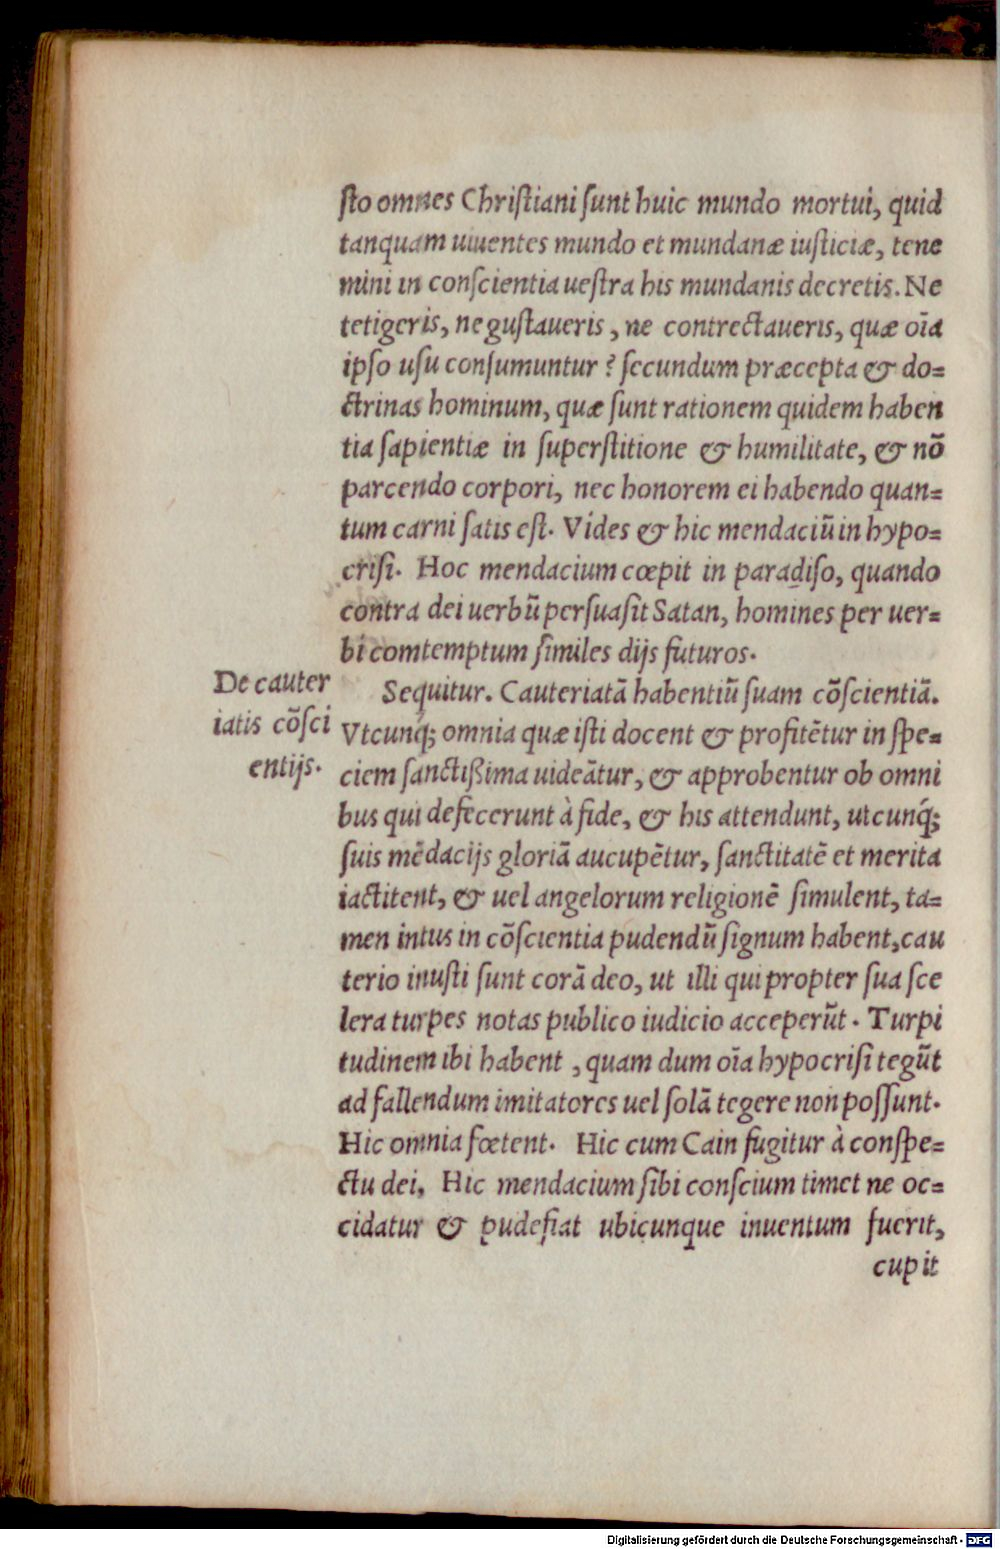 sto omnes Christiani sunt huic mundo mortui, quid
tanquam uiuentes mundo et mundanæ iusticiæ, tene
mini in conscientia uestra his mundanis decretis. Ne
tetigeris, ne gustaueris, ne contrectaueris, quæ oĩa
ipso usu consumuntur? secundum præcepta & do=
ctrinas hominum, quæ sunt rationem quidem haben
tia sapientiæ in superstitione & humilitate, & nõ
parcendo corpori, nec honorem ei habendo quan=
tum carni satis est. Vides & hic mendaciũ in hypo=
crisi. Hoc mendacium cœpit in paradiso, quando
contra dei uerbũ persuasit Satan, homines per uer=
bi comtemptum similes dijs futuros.
De cauter
iatis cõsci
entijs.
Sequitur. Cauteriatã habentiũ suam cõscientiã.
Vtcunq; omnia quæ isti docent & profitẽtur in spe=
ciem sanctißima uideãtur, & approbentur ob omni
bus qui defecerunt à fide, & his attendunt, utcunq́;
suis mẽdacijs gloriã aucupẽtur, sanctitatẽ et merita
iactitent, & uel angelorum religionẽ simulent, ta=
men intus in cõscientia pudendũ signum habent, cau
terio inusti sunt corã deo, ut illi qui propter sua sce
lera turpes notas publico iudicio acceperũt. Turpi
tudinem ibi habent, quam dum oĩa hypocrisi tegũt
ad fallendum imitatores uel solã tegere non possunt.
Hic omnia fœtent. Hic cum Cain fugitur à conspe=
ctu dei. Hic mendacium sibi conscium timet ne oc=
cidatur & pudefiat ubicunque inuentum fuerit,
cupit
Digitalisierung gefördert durch die Deutsche Forschungsgemeinschaft - DFG